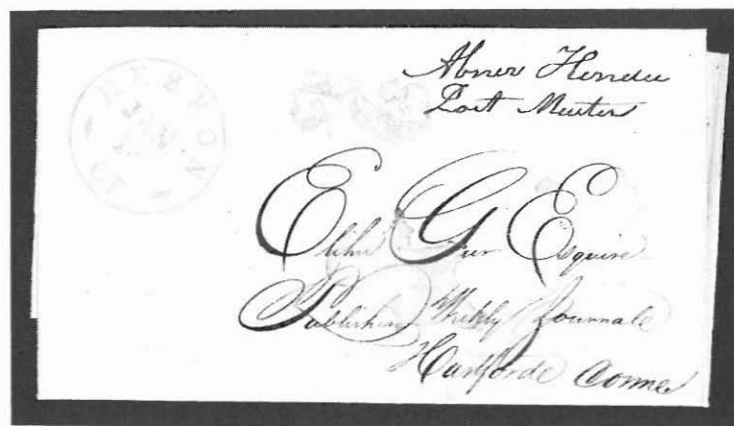 HEBRON
CT
Abner Hendee
Post Master
Elihu Geer Esquire
Publisher Weekly Journale
Hartforde Conne